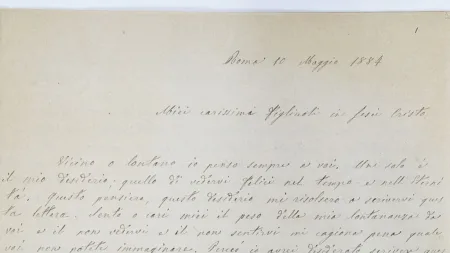 1
Roma 10 Maggio 1884
Miei carissimi figliuoli in Gesù Cristo
Vicino o lontano io penso sempre a voi. Un solo è
il mio desiderio, quello di vedervi felici nel tempo e nell'eterni
tà. Questo pensiero, questo desiderio mi risolsero a scrivervi que
sta lettera. Sento o cari miei il peso della mia lontananza da
voi e il non vedervi e il non sentirvi mi cagiona pena quale
voi non potete immaginare.